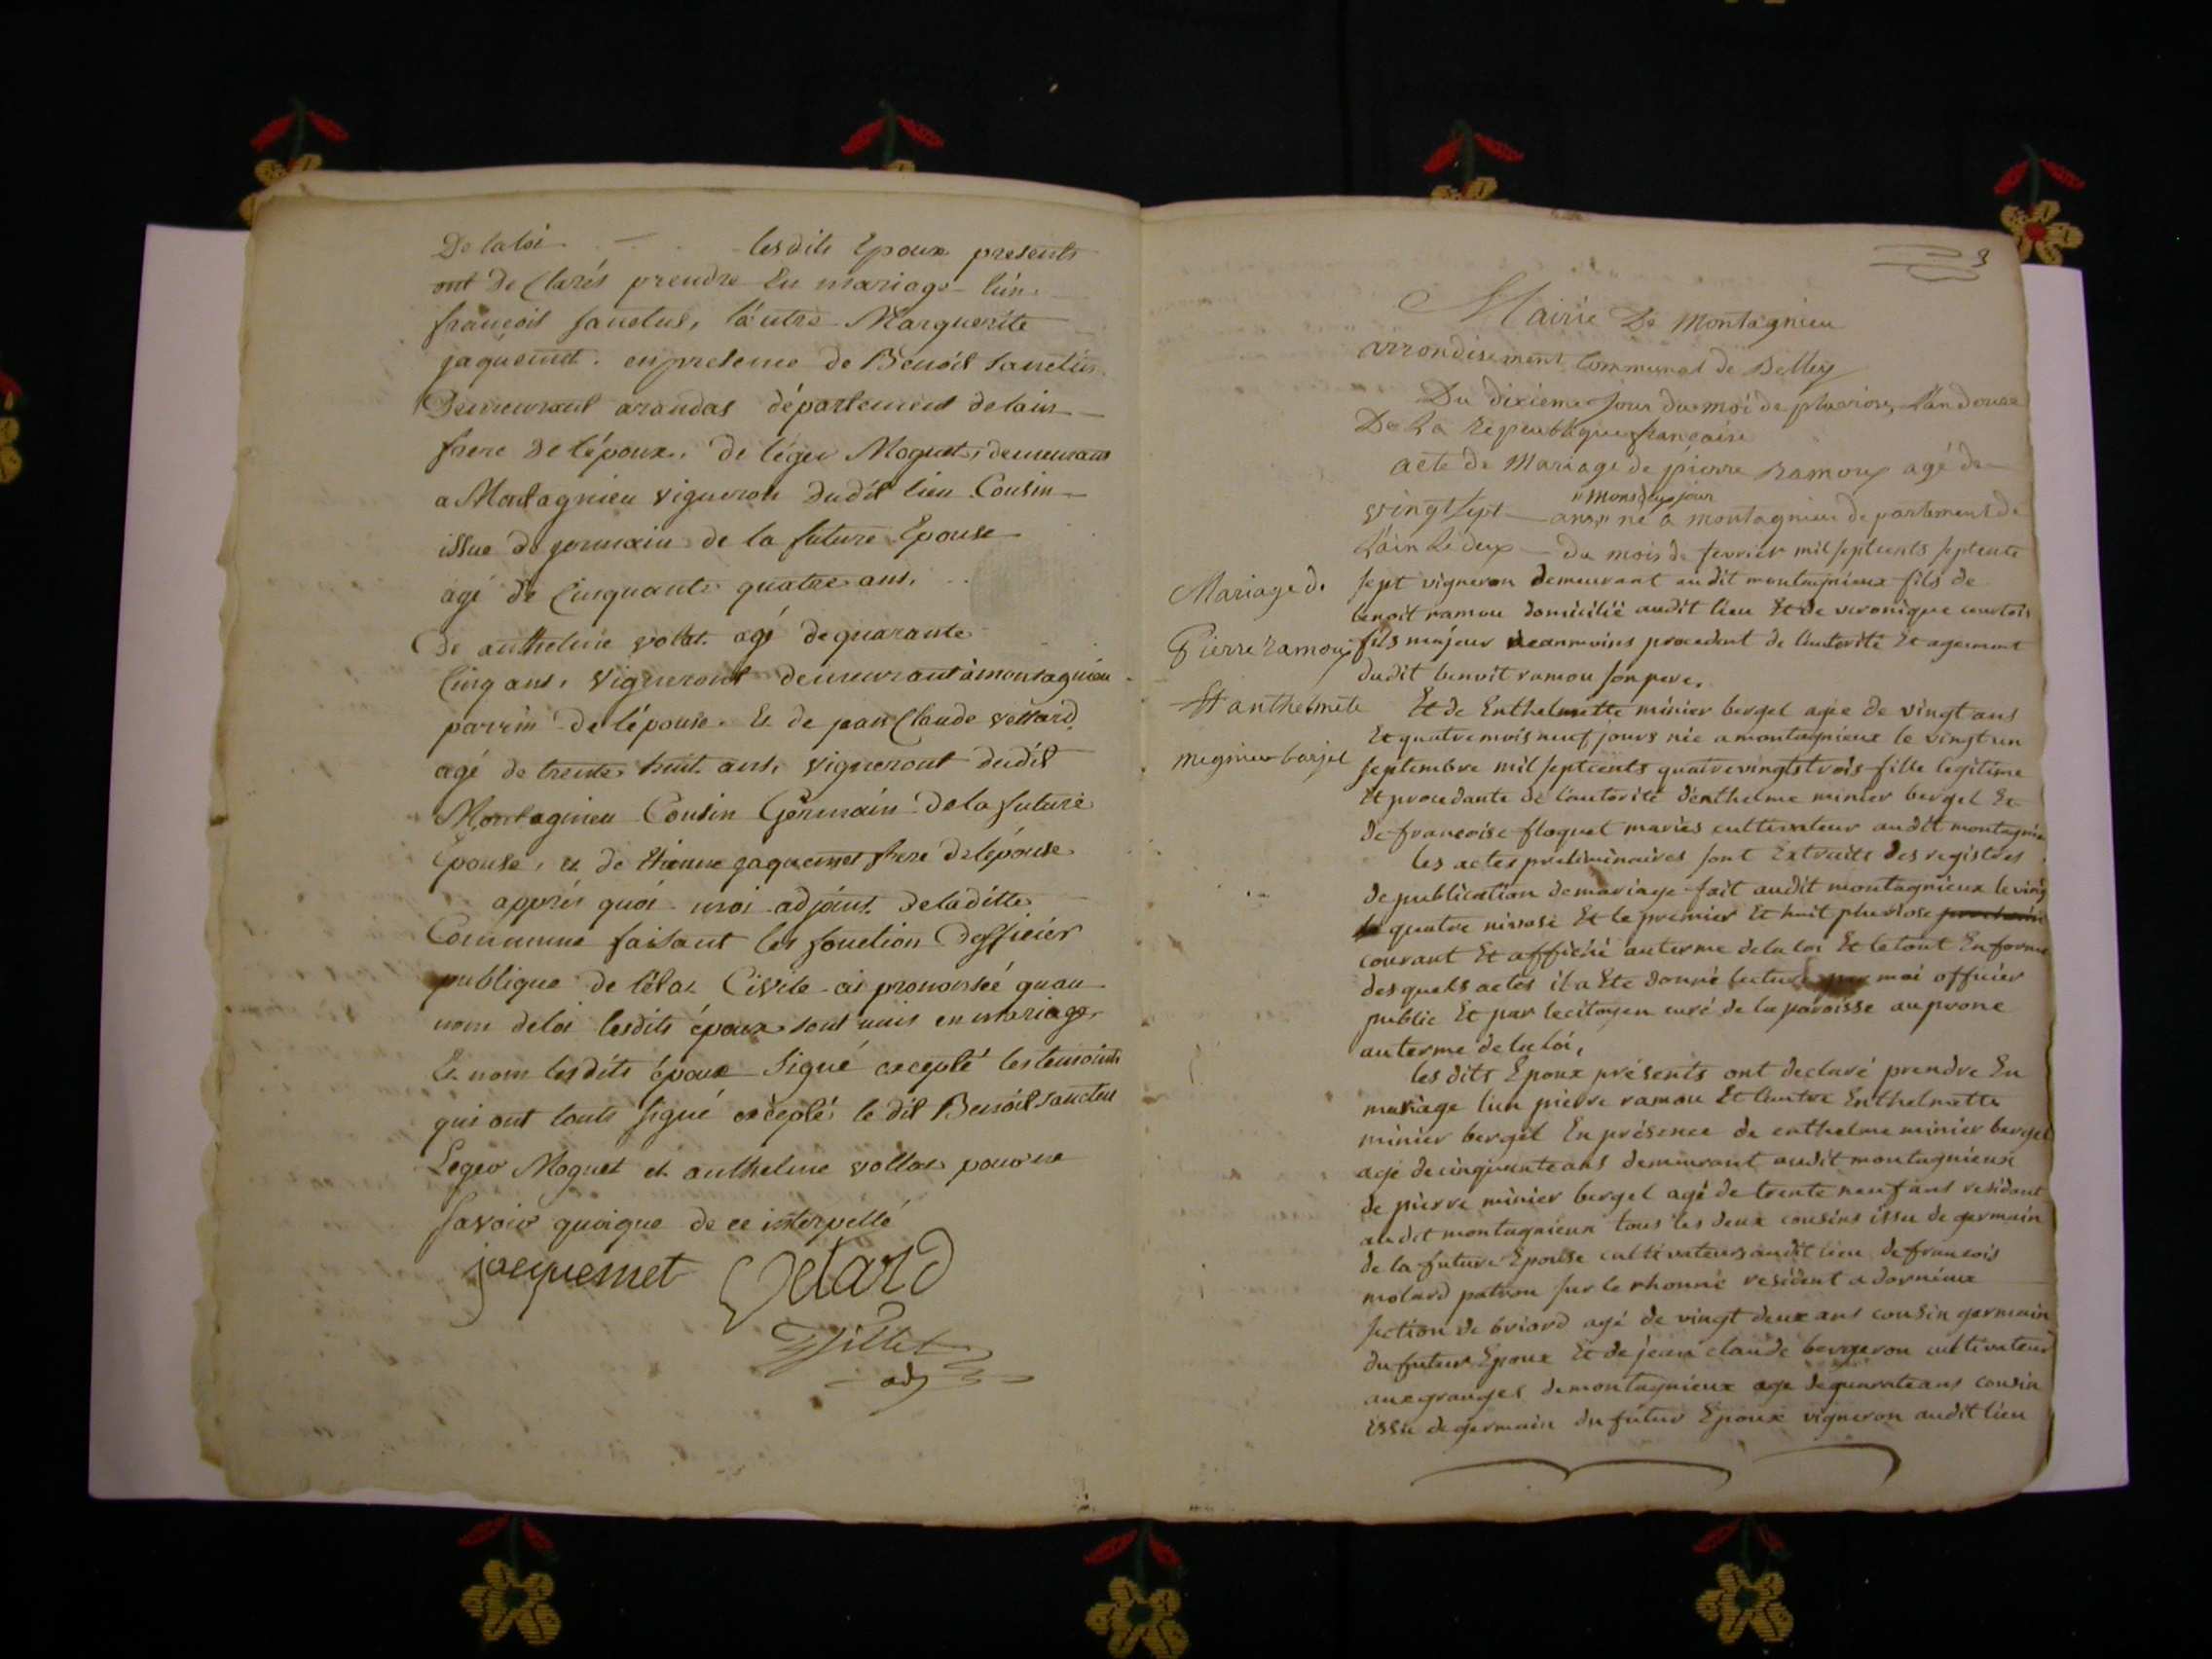 De la loi lesdits Epoux presents
ont de Clarés prendre En mariage l'un
françois sanctus, l'autre Marguerite
jaquemet. en presence de Benoit Sanctus
Demeurant arandas département de lain
frere de l'époux. de léger Moguet, demeurant
a Montagnieu vigneron dudit lieu Cousin
issue de germain de la future Epouse
agé de Cinquante quatre ans.
De anthelme vollat agé de quarante
Cinq ans, vigneront demeurant à montagnieu
parrin de lépouse. Et de jean Claude vettard
agé de trente huit ans, vigneront dudit
Montagnieu Cousin Germain de la future
Epouse, et de Etienne jaquemet frere de lépouse
apprés quói moi adjoint de laditte
Commune faisant les fonction d'officiér
publique de l'état Civile ai prononsée quau
nom de loi lesdits époux sont unis en mariage
Et nom lesdits époux Signé excepté les temoints
qui ont touts signé exceptés le dit Benoit Sanctus
Leger Moguet et anthelme vollat pour ne
savoir quoique de ce interpellé
jacquemet Vetard
Tillet
adj
3
Mairie De Montagnieu
arrondisement Communal de Belley
Du dixiéme Jour du moi de pluviose, L'an douze
De La Republique française
acte de Mariage de pierre Ramoux agé de
" mons deux jour
vingt sept ans " né a montagnieu departement de
L'ain Le deux du mois de fevrier mil septcents septente
Mariage de
Pierre ramoux
Et anthelmete
megnier barjel
sept vigneron demeurant audit montagnieux fils de
benoit ramou domicilié audit lieu Et de veronique courtois
fils majeur neanmoins procedent de l'autorité Et agement
dudit benoit ramou son pere.
Et de Enthelmette minier bergel agée de vingt ans
Et quatre mois neuf jours née a montagnieux le vingt un
septembre mil septcents quatrevingts trois fille legitime
Et procedante de l'autorité d'enthelme minier bergel Et
de francoise floquet mariés cultivateur audit montagnie
les actes preliminaires sont Extraits des registres
de publication de mariage fait audit montagnieux le ving
quatre nivose Et le premier Et huit pluviose prochain
courant Et affiché au terme de la loi Et le tout En forme
desquels actes il a Ete donné lecture par moi officier
public Et par le citoyen curé de la paroisse au prone
au terme de la loi,
les dits Epoux présents ont declaré prendre En
mariage l'un pierre ramou Et l'autre Enthelmette
minier bergel En présence de enthelme minier bergel
age de cinquante ans demeurant audit montagnieux
de pierre minier bergel agé de trente neuf ans residant
audit montagnieux tous les deux cousins issu de germain
de la future Epouse cultivateurs audit lieu de francois
molard patron sur le rhonne resident a dornieux
section de briord agé de vingt deux ans cousin germain
du futur Epoux Et de jean claude bergeron cultivateur
aux granges de montagnieux age de quarate ans cousin
issu de germain du futur Epoux vigneron audit lieu